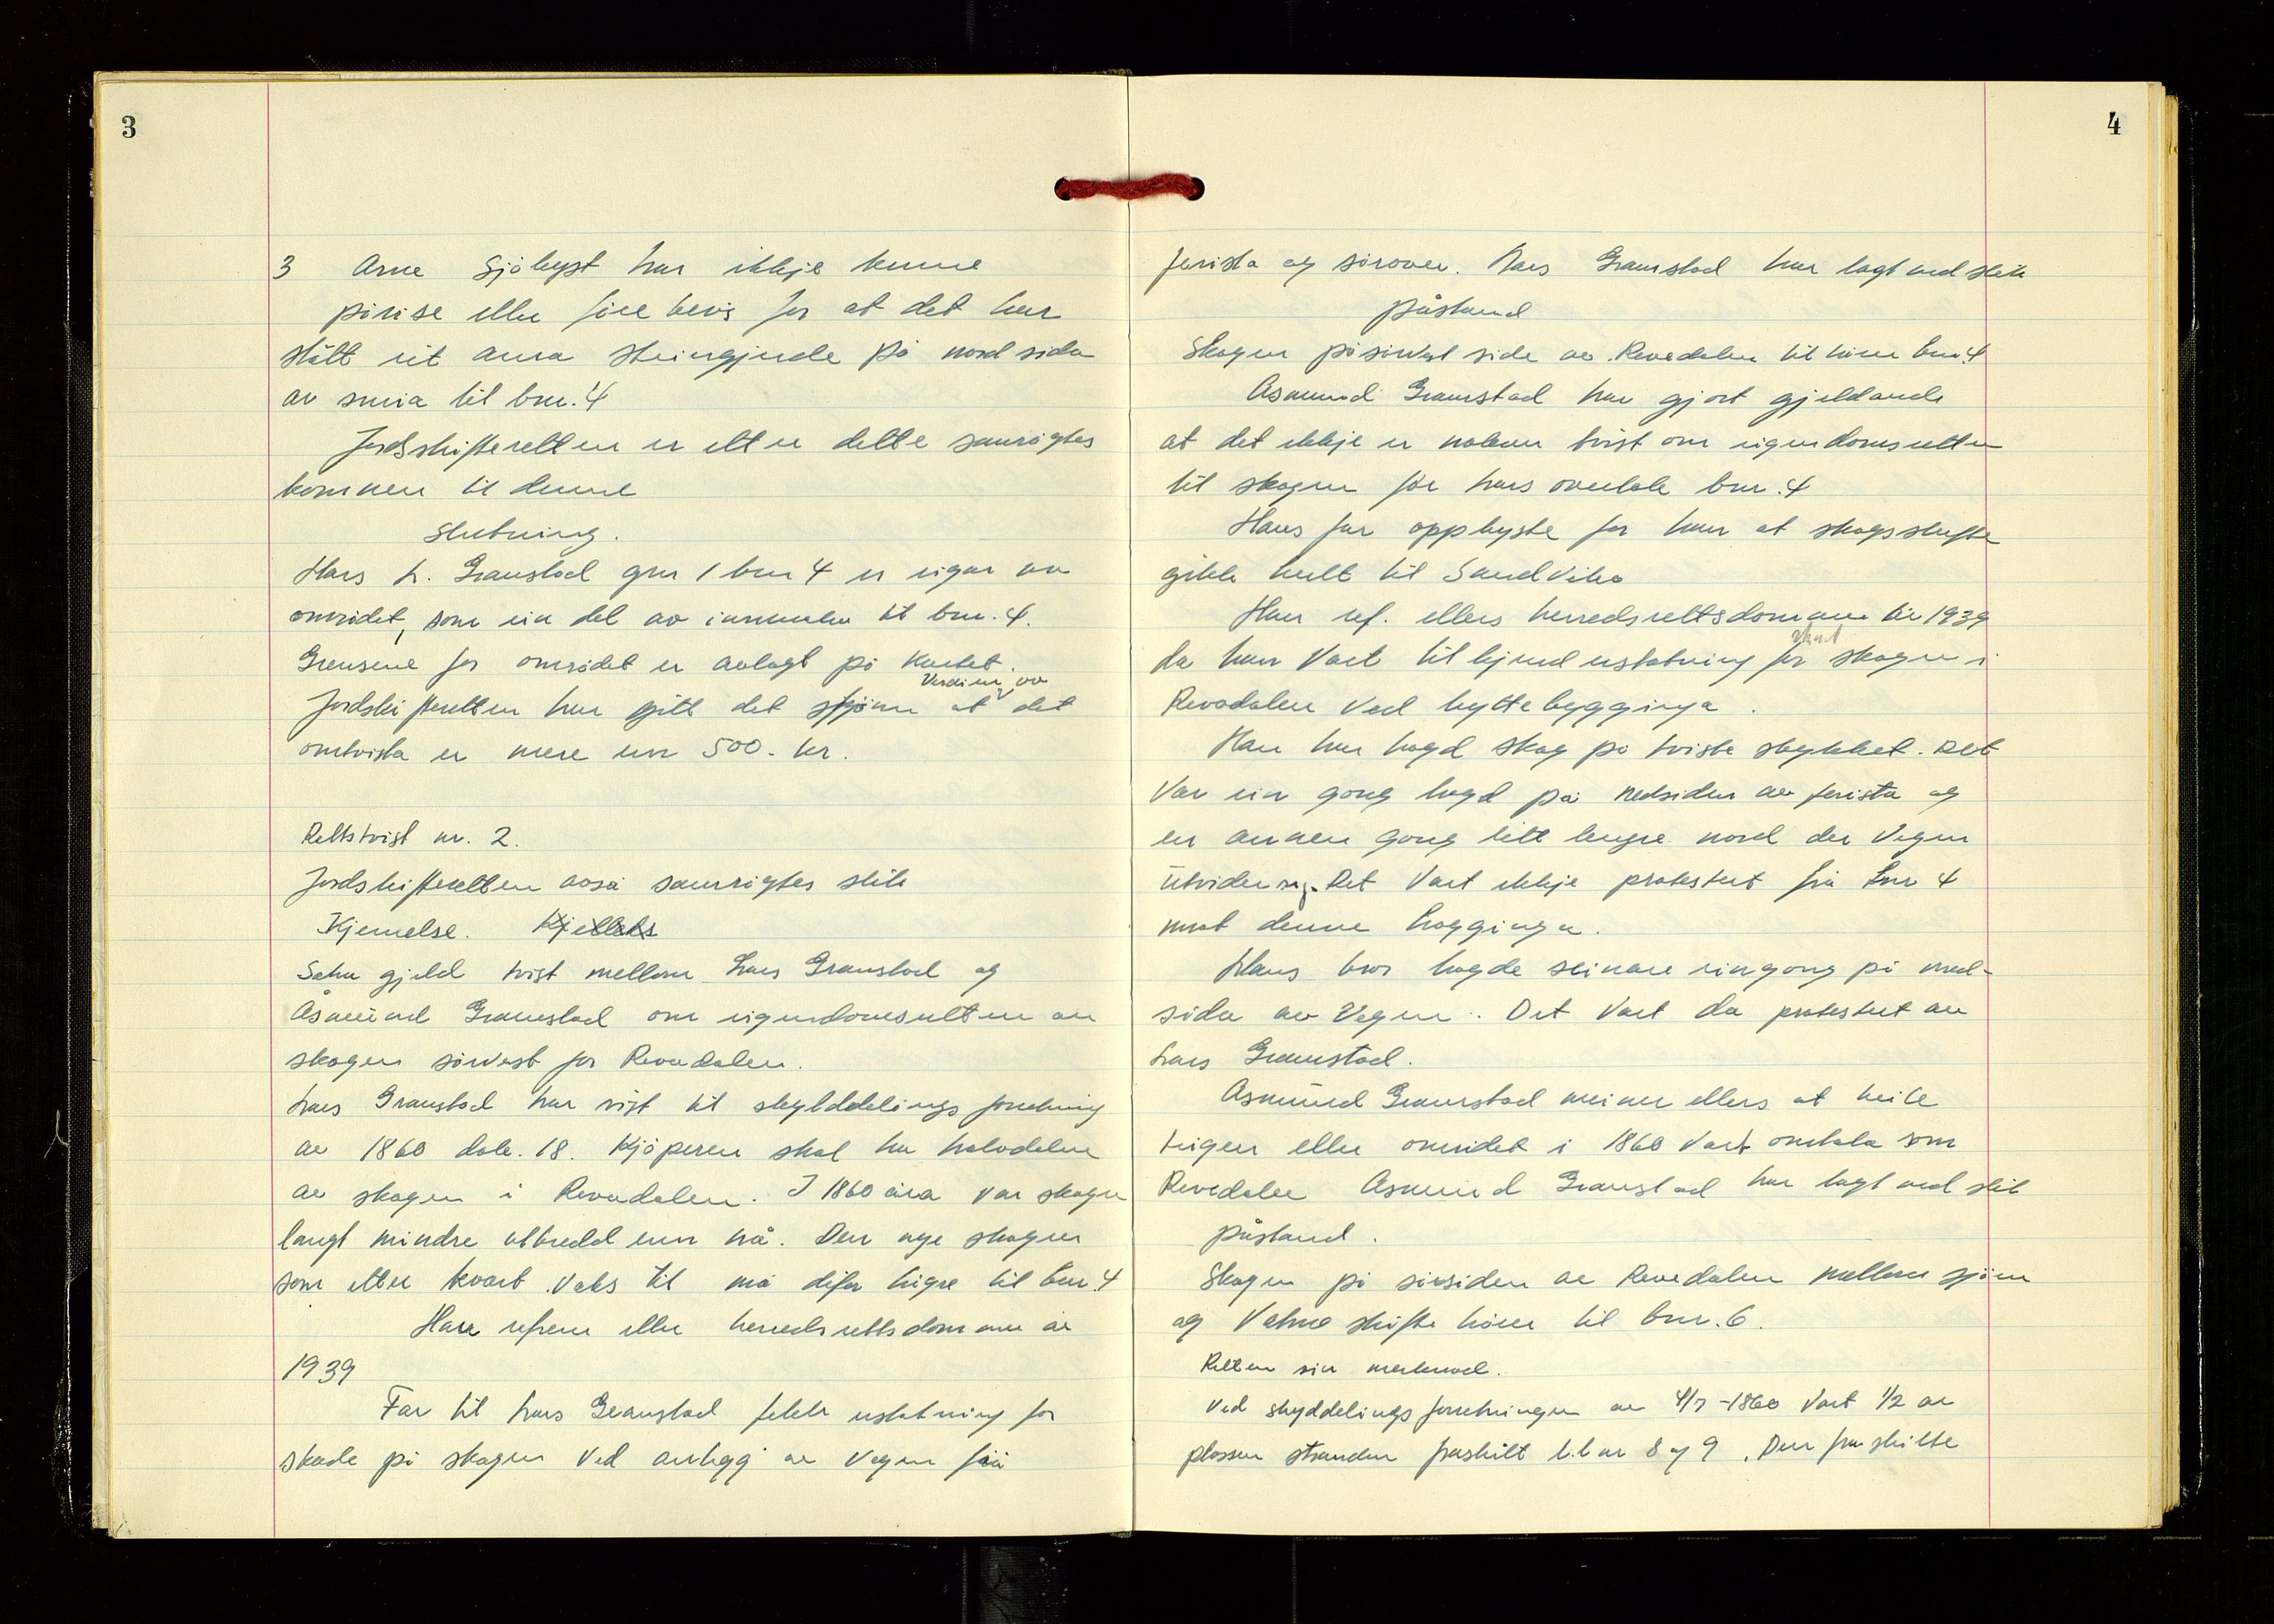 3
3 Arne Sjöbyst har ikkje kunne
påvise eller före bevis for at det har
stått eit anna steingjerde på nord sida
av smia til bnr. 4
Jordskifteretten er etter dette samrøystes
kommen til denne
Slutning.
Hans L. Gramstad gnr 1 bnr 4 er eigar av
området, som ein del av innmarka til bnr. 4.
Grensene for området er avlagt på kartet.
Verdien av
Jordskifteretten har gitt det skjönn at det
omtvista er mere enn 500.- kr.
Rettstvist nr. 2.
Jordskifteretten avsa samrøystes slik
Kjennelse. Kjellets
Saka gjeld tvist mellom Lars Gramstad og
Åsmund Gramstad om eigendomsretten av
skogen sörvest for Revedalen.
Lars Gramstad har vist til skylddelings forretning
av 1860 dok. 18. Kjöperen skal ha halvdelen
av skogen i Revedalen. I 1860 åra var skogen
langt mindre utbredd enn nå. Den nye skogen
som etter kvart vaks til må difor högre til bnr. 4
Han referere eller herredsrettsdommen av
1939
Far til Lars Gramstad fekk erstatning for
skade på skogen ved anlegg av vegen frå
4
ferista og sörover. Lars Gramstad har lagt ned slik
påstand
Skogen på sörvest side av Revedalen til hörer bnr 4
Asmund Gramstad har gjort gjeldande
at det ikkje er nokon tvist om eigendomsretten
til skogen för hans overtok bnr. 4
Hans far opplyste for han at skogsskifte
gikk heilt til Sandvika
Han ref. ellers herredsrettsdommen av 1939
da han vart tilkjend erstatning for skogen i
Revedalen ved hyttebygginga.
Han har hogd skog på tviste stykket. Det
var ein gong hogd på nedsiden av ferista og
en annen gong litt lengre nord der vegen
utvider seg. Det vart ikkje protestert frå bnr 4
mot denne hogginga.
Hans bror hogde seinare ein gong på ned-
sida av vegen. Det vart da protestert av
Lars Gramstad.
Asmund Gramstad meiner ellers at heile
teigen eller området i 1860 vart omtala som
Revedalen Asmund Gramstad har lagt ned slik
påstand.
Skogen på sörsiden av Revedalen mellom sjöen
og Vatne skifte hörer til bnr. 6.
Retten sin merknad.
Ved skylddelings forretningen av 4/7 -1860 vart 1/2 av
plassen stranden fraskilt l.b nr 8 og 9. Den fraskilte